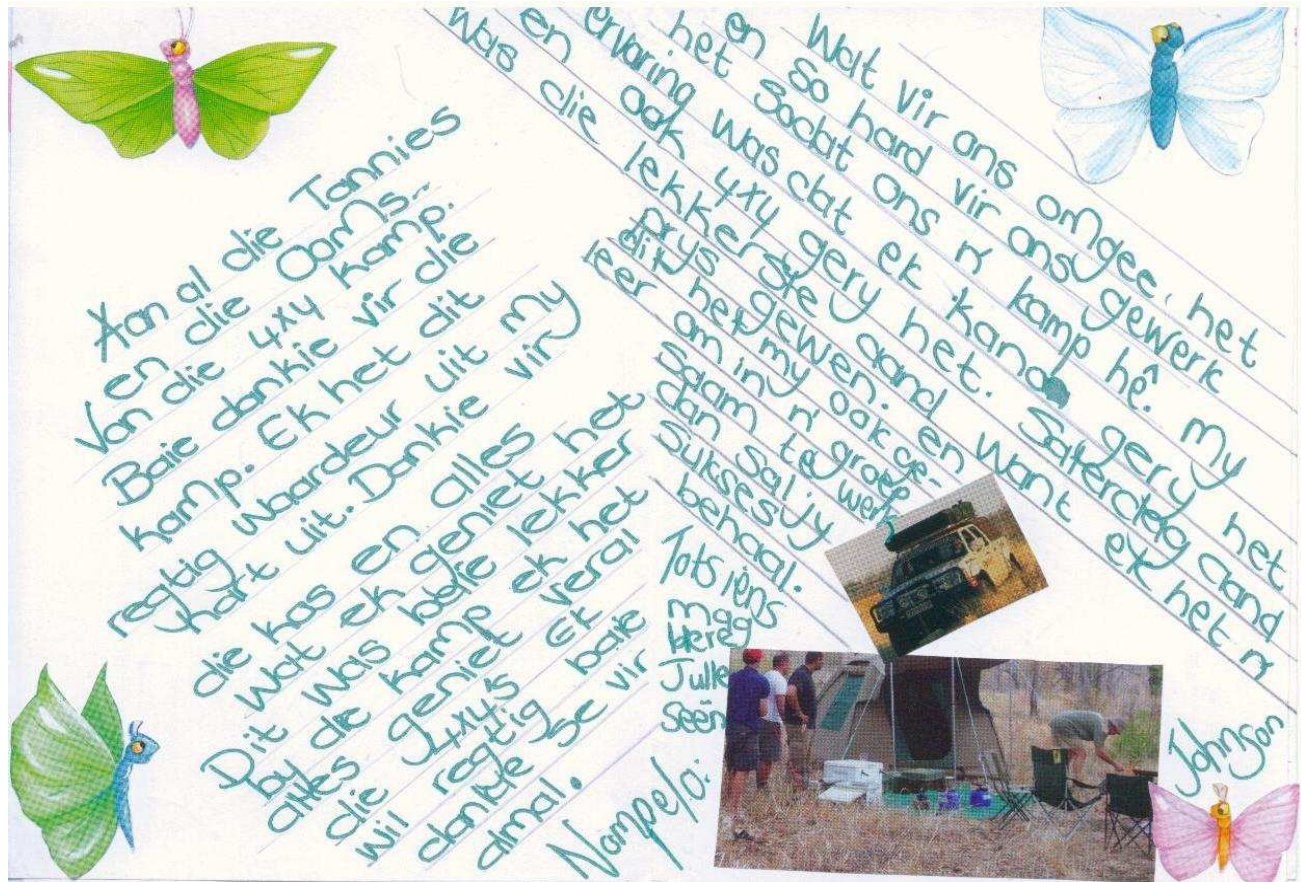 Aan al die Tannies
en die Ooms..
Van die 4x4 kamp.
Baie dankie vir die
kamp. Ek het dit
regtig waardeur uit my
hart uit. Dankie vir
die kos en alles
Wat ek geniet het
Dit was baie lekker
by die kamp ek het
alles geniet veral
die 4x4's Ek
wil regtig baie
dankie se vir
almal.
Nampelo:
Wat vir ons omgee, het
en so hard vir ons gewerk
het sodat ons 'n kamp hê. My
ervaring was dat ek kano gery het
en ook 4x4 gery het. Saterdag aand
was die lekkerste aand want ek het 'n
Prys gewen. en
dit het my ook ge-
leer om in 'n groep
saam te werk
dan sal jy
sukses
behaal.
Tot siens
mag
Here
Julle
seën
Johnson